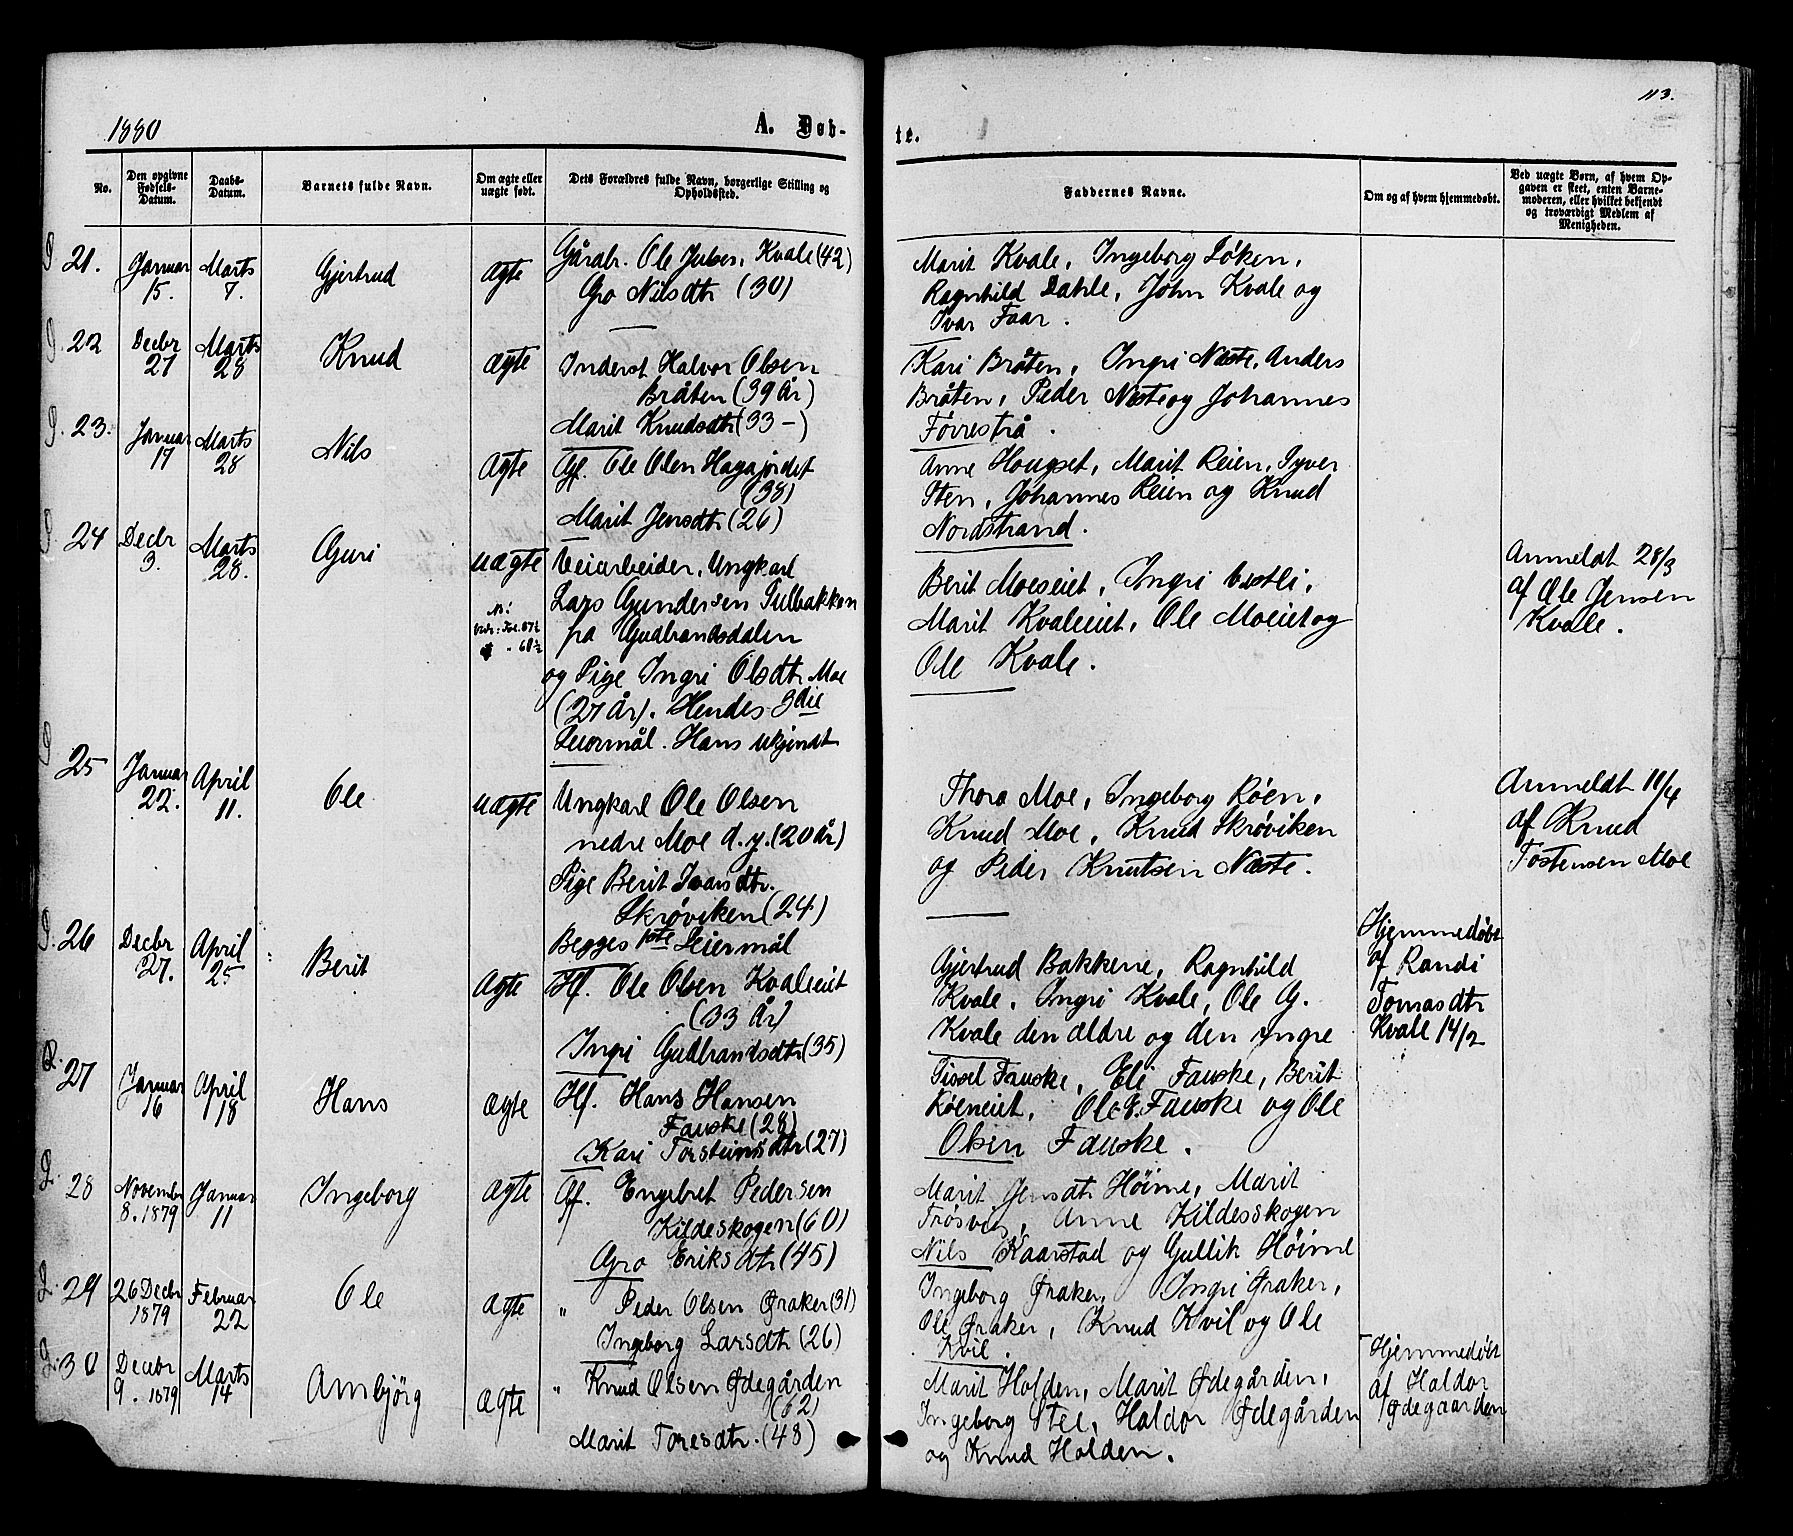 113.
1880
A. Døb-
te.
No.
Den opgivne Fødsels-Datum.
Daabs-Datum.
Barnets fulde Navn.
Om ægte eller uægte født.
Dets Forældres fulde Navn, borgerlige Stilling og Opholdssted.
Faddernes Navne.
Om og af hvem hjemmedøbt.
Ved uægte Børn, af hvem Opgaven er skeet, enten Barnemoderen, eller hvilket bekjendt og troværdigt Medlem af Menigheden.
21. Januar 15. Marts 7. Gjertrud ægte
Gårdbr. Ole Julsen Kvale (42)
Gro Nilsdtr (30)
Marit Kvale, Ingeborg Løken,
Ragnhild Dahle, John Kvale og
Ivar Faar.
22 Decbr 27 Marts 28 Knud ægte
Inderst Halvor Olsen
Bråten (39 år)
Marit Knudsdtr (33 -)
Kari Bråten, Ingri Næste, Anders
Bråten, Peder Næste og Johannes
Førrestrå.
23. Januar 17 Marts 28 Nils ægte
Gf. Ole Olen Hagajordet
(38)
Marit Jensdtr (26)
Anne Hougset, Marit Reien, Syver
Sten, Johannes Reien og Knud
Nordstrand.
24 Decbr 3. Marts 28. Guri uægte
Veiarbeider, Ungkarl
Lars Gundersen Tulbakken
fra Gudbrandsdalen
og Pige Ingri Olsdtr Moe
(27 år). Hendes 3die
Leiermål. Hans ukjendt
Berit Moeseiet, Ingri Vestli,
Marit Kvaleeiet, Ole Moeiet og
Ole Kvale.
Anmeldt 28/3
af Ole Jensen
Kvale.
25 Januar 22. April 11. Ole uægte
Ungkarl Ole Olsen
nedre Moe d.y. (20 år)
Pige Berit Ivarsdtr.
Skrøviken (24)
Begges 1ste Leiermål
Thora Moe, Ingeborg Røen,
Knud Moe, Knud Skrøviken
og Peder Knutsen Næste.
Anmeldt 11/4
af Knud
Tostensen Moe
26 Decbr 27. April 25 Berit ægte
Hf. Ole Olsen Kvaleeiet
(33 År)
Ingri Gudbrandsdtr (35)
Gjertrud Bakkene, Ragnhild
Kvale, Ingri Kvale, Ole G.
Kvale den ældre og den yngre
Hjemmedøbt
af Randi
Tomasdtr
Kvale 14/2
27 Januar 16 April 18 Hans ægte
Hf. Hans Hansen
Fauske (28)
Kari Torsteinsdtr (27)
Sissel Fauske, Eli Fauske, Berit
Røeneiet, Ole E. Fauske og Ole
Olsen Fauske.
28 November 8. 1879 Januar 11 Ingeborg ægte
Gf. Engebret Pedersen
Kildeskogen (60)
Gro Eriksdtr (45)
Marit Jensdtr Høime, Marit
Frøsvig, Anne Kildesskogen
Nils Kaarstad og Gullik Høime
29 26 Decbr 1879 Februar 22 Ole ægte
" Peder Olsen Øraker (31)
Ingeborg Larsdtr (26)
Ingeborg Øraker, Ingri Øraker,
Ole Øraker, Knud Kvil og Ole
Kvil.
30 Decbr 9. 1879 Marts 14 Ambjörg ægte
" Knud Olsen Ødegården
(62)
Marit Toresdtr. (48)
Marit Holden, Marit Ødegården,
Ingeborg Stee, Haldor Ødegården
og Knud Holden.
Hjemmedøbt
af Haldor
Ødegaarden